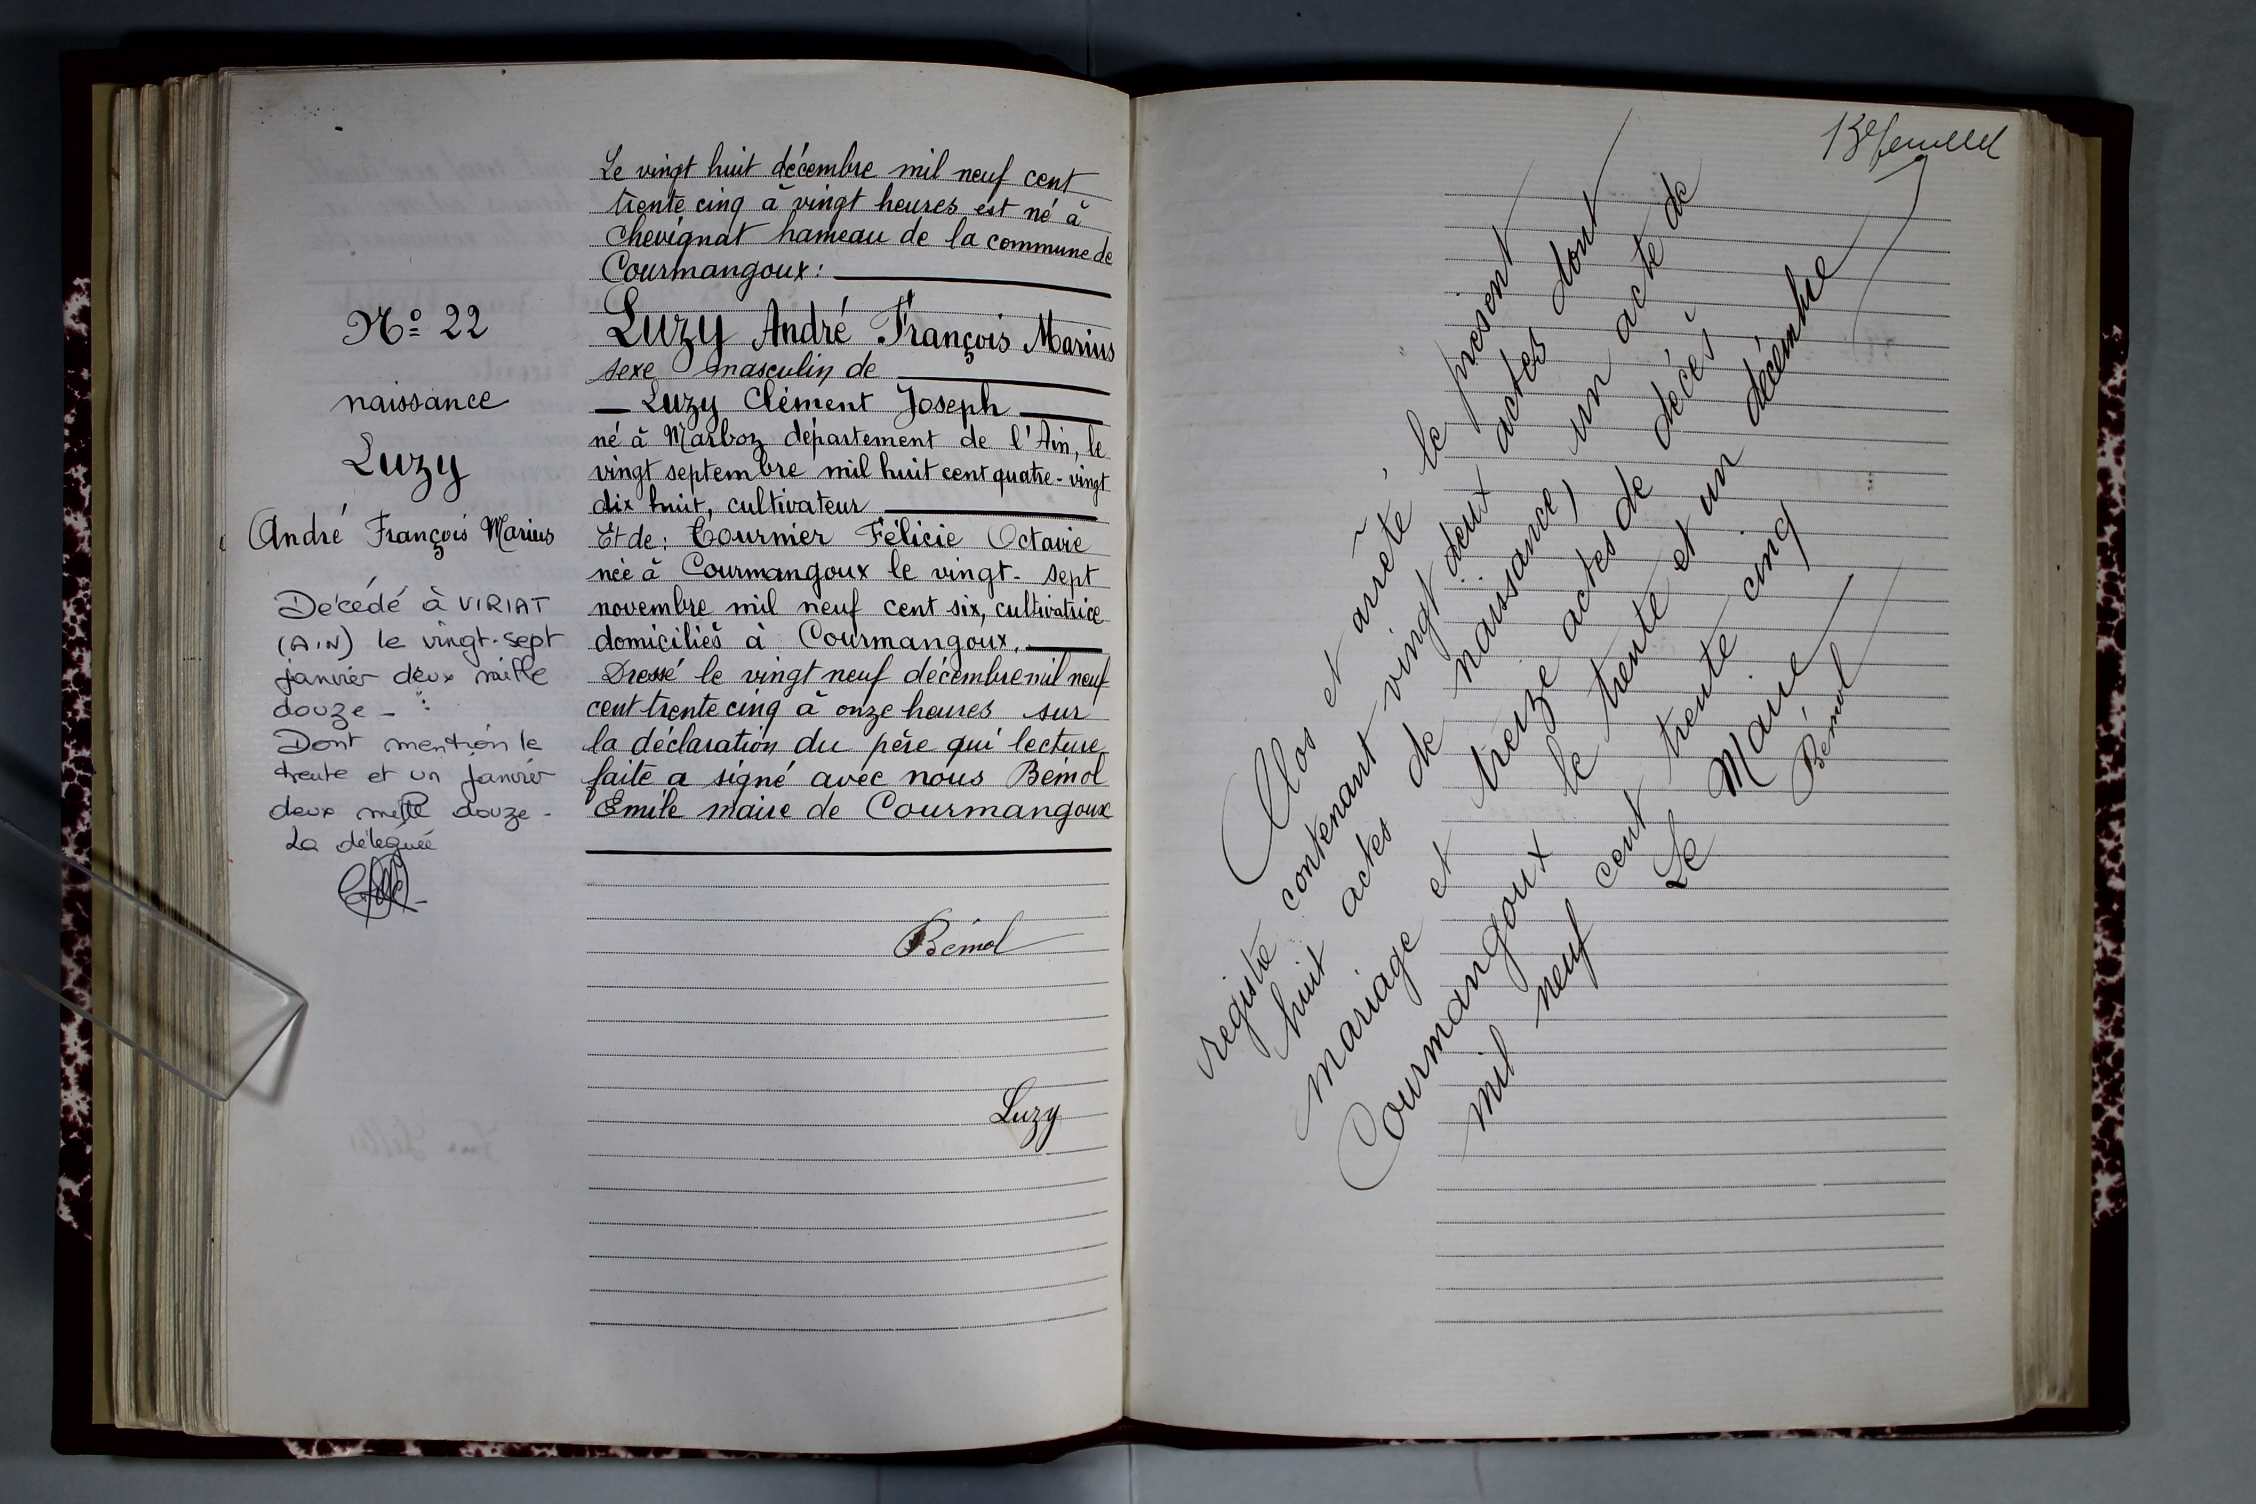 N° 22
naissance
Luzy
André François Marius
Décédé à VIRIAT
(AIN) le vingt-sept
janvier deux mille
douze -
Dont mention le
trente et un janvier
deux mille douze -
La déléguée
Le vingt huit décembre mil neuf cent
trente cinq à vingt heures est né à
Chevignat hameau de la commune de
Courmangoux :
Luzy André François Marius
sexe masculin de
— Luzy Clément Joseph —
né à Marboz département de l'Ain, le
vingt septembre mil huit cent quatre-vingt
dix huit, cultivateur
Et de : Tournier Félicie Octavie
née à Courmangoux le vingt-sept
novembre mil neuf cent six, cultivatrice
domiciliés à Courmangoux.
Dressé le vingt neuf décembre mil neuf
cent trente cinq à onze heures sur
la déclaration du père qui lecture
faite a signé avec nous Bémol
Emile maire de Courmangoux
Bémol
Luzy
13e feuillet
Clos et arrêté le présent
registre contenant vingt deux actes dont
huit actes de naissance, un acte de
mariage et treize actes de décès
Courmangoux le trente et un décembre
mil neuf cent trente cinq
Le Maire
Bémol